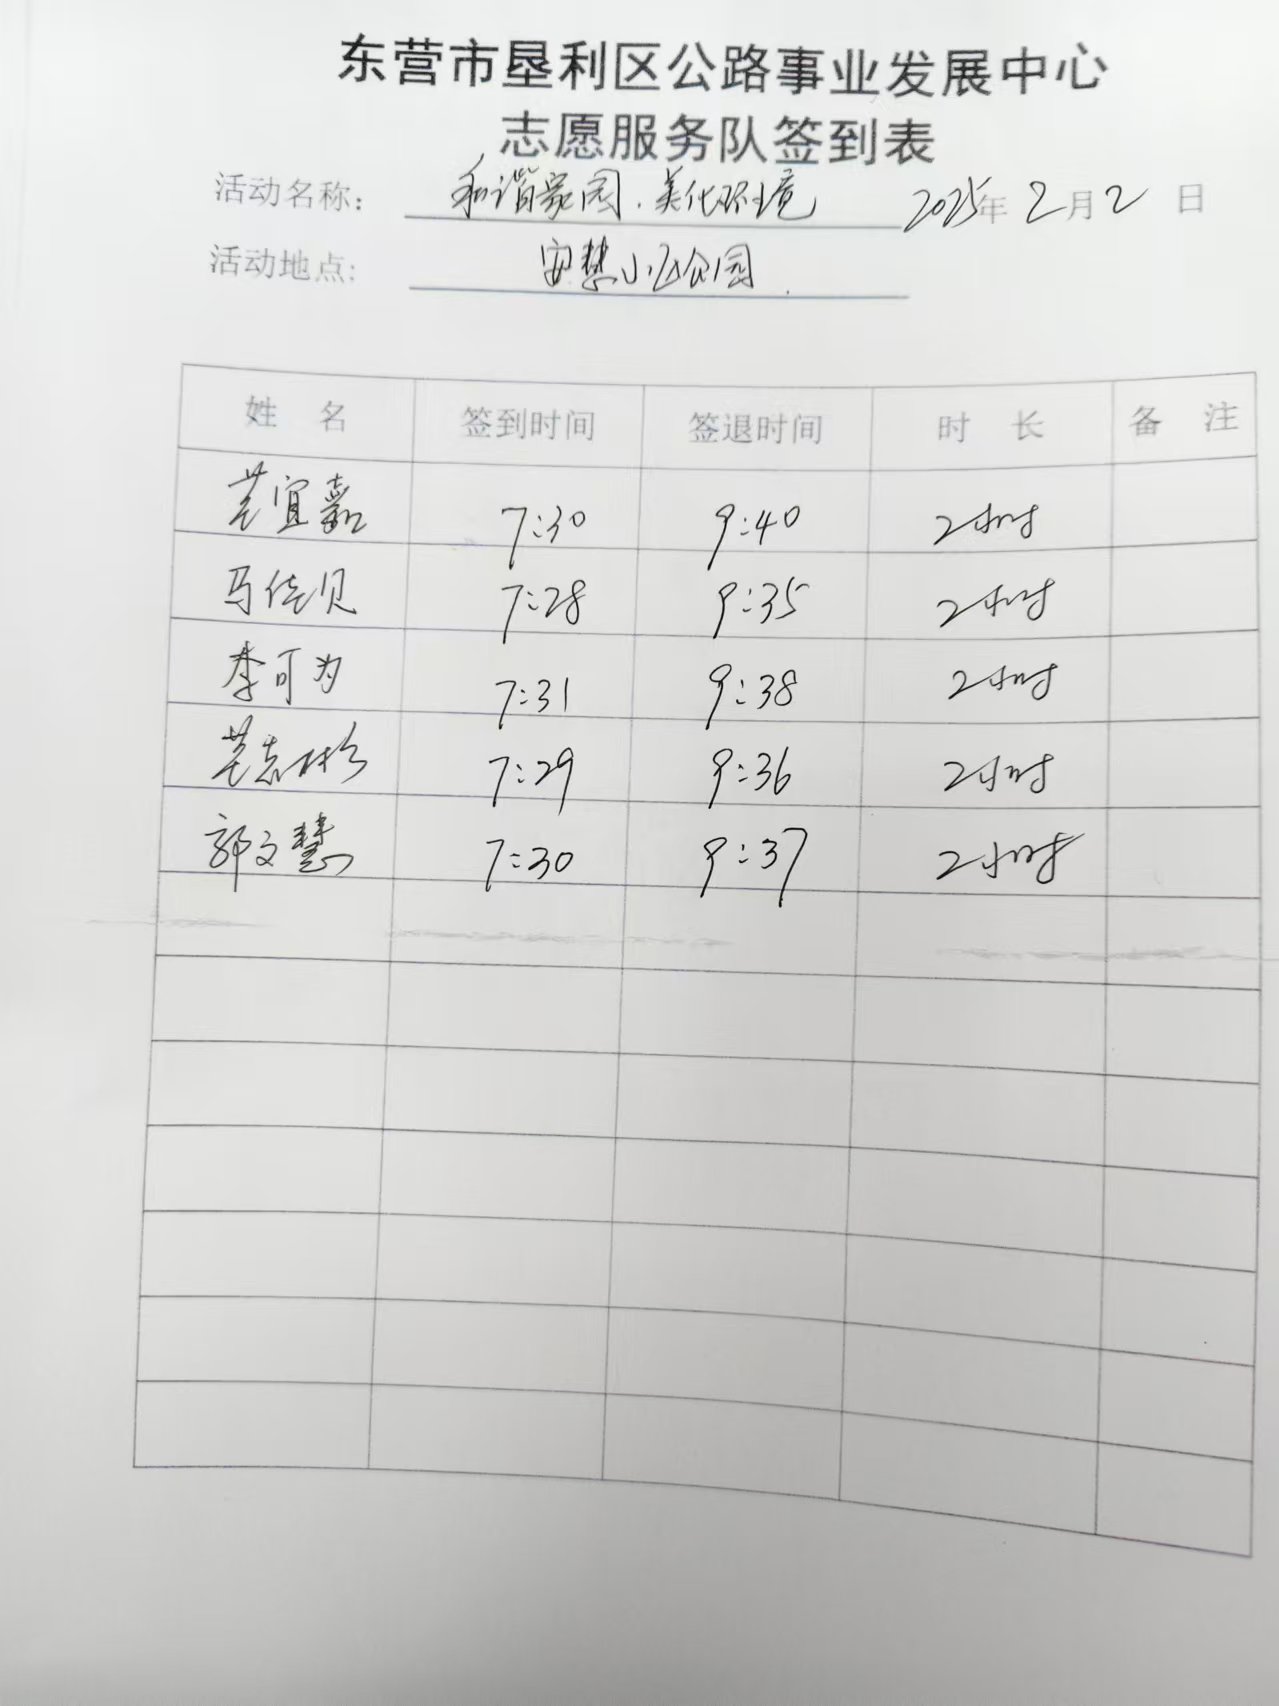 东营市垦利区公路事业发展中心
志愿服务队签到表
活动名称： 和谐家园.美化环境 2025年2月2日
活动地点: 安慧小区公园
姓 名 签到时间 签退时间 时 长 备 注
宜嘉 7:30 9:40 2小时
马佳贝 7:28 9:35 2小时
李可为 7:31 9:38 2小时
志彬 7:29 9:36 2小时
郭文慧 7:30 9:37 2小时